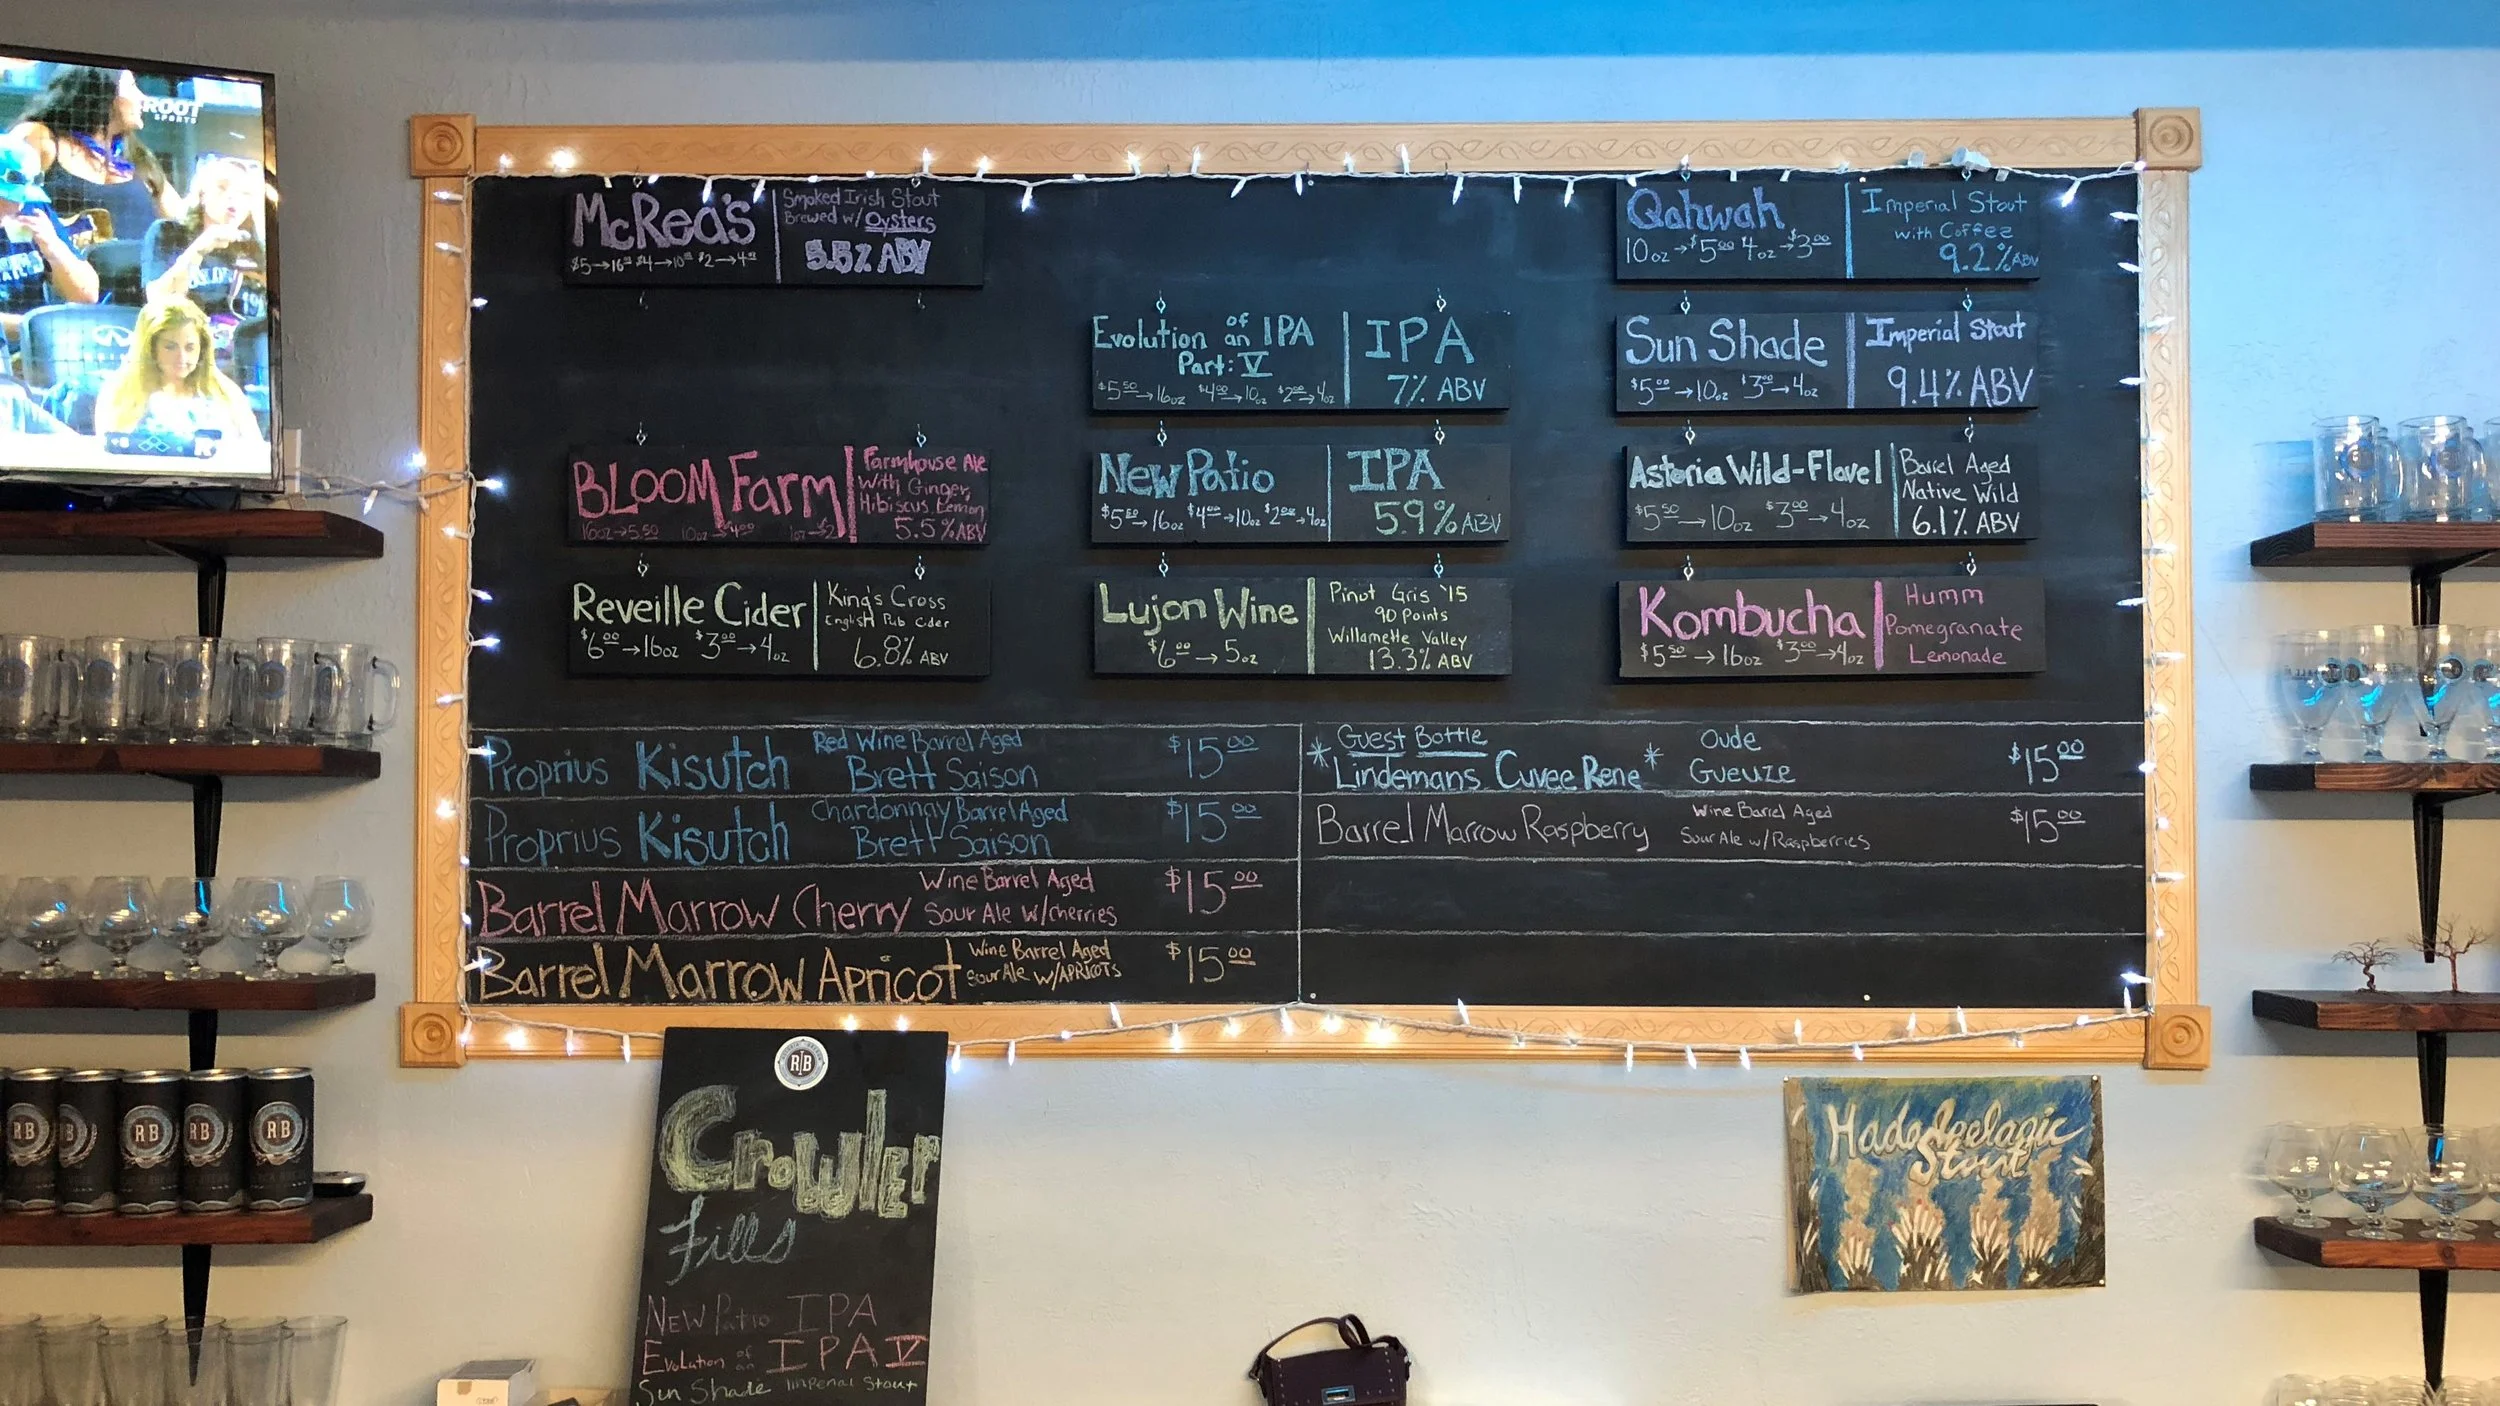 ROOT
SPORTS
McRea's
$5→16oz $4→10oz $2→4oz
Smoked Irish Stout
Brewed w/ Oysters
5.5% ABV
Qahwah
10oz→$5.00 4oz→$3.00
Imperial Stout
with Coffee
9.2% ABV
Evolution of an IPA
Part: V
$5.50→16oz $4.00→10oz $2.00→4oz
IPA
7% ABV
Sun Shade
$5.00→10oz $3.00→4oz
Imperial Stout
9.4% ABV
BLOOM Farm
16oz→5.50 10oz→$4.00
Farmhouse Ale
With Ginger,
Hibiscus, Lemon
5.5% ABV
New Patio
$5.50→16oz $4.00→10oz $2.00→4oz
IPA
5.9% ABV
Astoria Wild-Flavel
$5.50→10oz $3.00→4oz
Barrel Aged
Native Wild
6.1% ABV
Reveille Cider
$6.00→16oz $3.00→4oz
King's Cross
English Pub Cider
6.8% ABV
Lujon Wine
$6.00→5oz
Pinot Gris '15
90 Points
Willamette Valley
13.3% ABV
Kombucha
$5.50→16oz $3.00→4oz
Humm
Pomegranate
Lemonade
Proprius Kisutch Red Wine Barrel Aged
Brett Saison $15.00
Proprius Kisutch Chardonnay Barrel Aged
Brett Saison $15.00
Barrel Marrow Cherry Wine Barrel Aged
Sour Ale w/cherries $15.00
Barrel Marrow Apricot Wine Barrel Aged
Sour Ale w/APRICOTS $15.00
* Guest Bottle
Lindemans Cuvee Rene * Oude
Gueuze $15.00
Barrel Marrow Raspberry Wine Barrel Aged
Sour Ale w/Raspberries $15.00
R B
Crowler
Fills
New Patio IPA
Evolution of an IPA V
Sun Shade Imperial Stout
Hadalpelagic
Stout
RB
B
RB
RB
RB